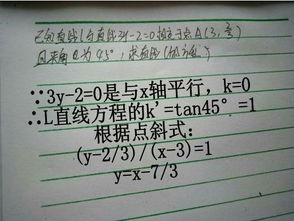 已知直线l与直线3y-2=0相交于点A(3,2/3)
且夹角θ为45°,求直线l的方程
∵3y-2=0是与x轴平行，k=0
∴L直线方程的k'=tan45°=1
根据点斜式：
(y-2/3)/(x-3)=1
y=x-7/3